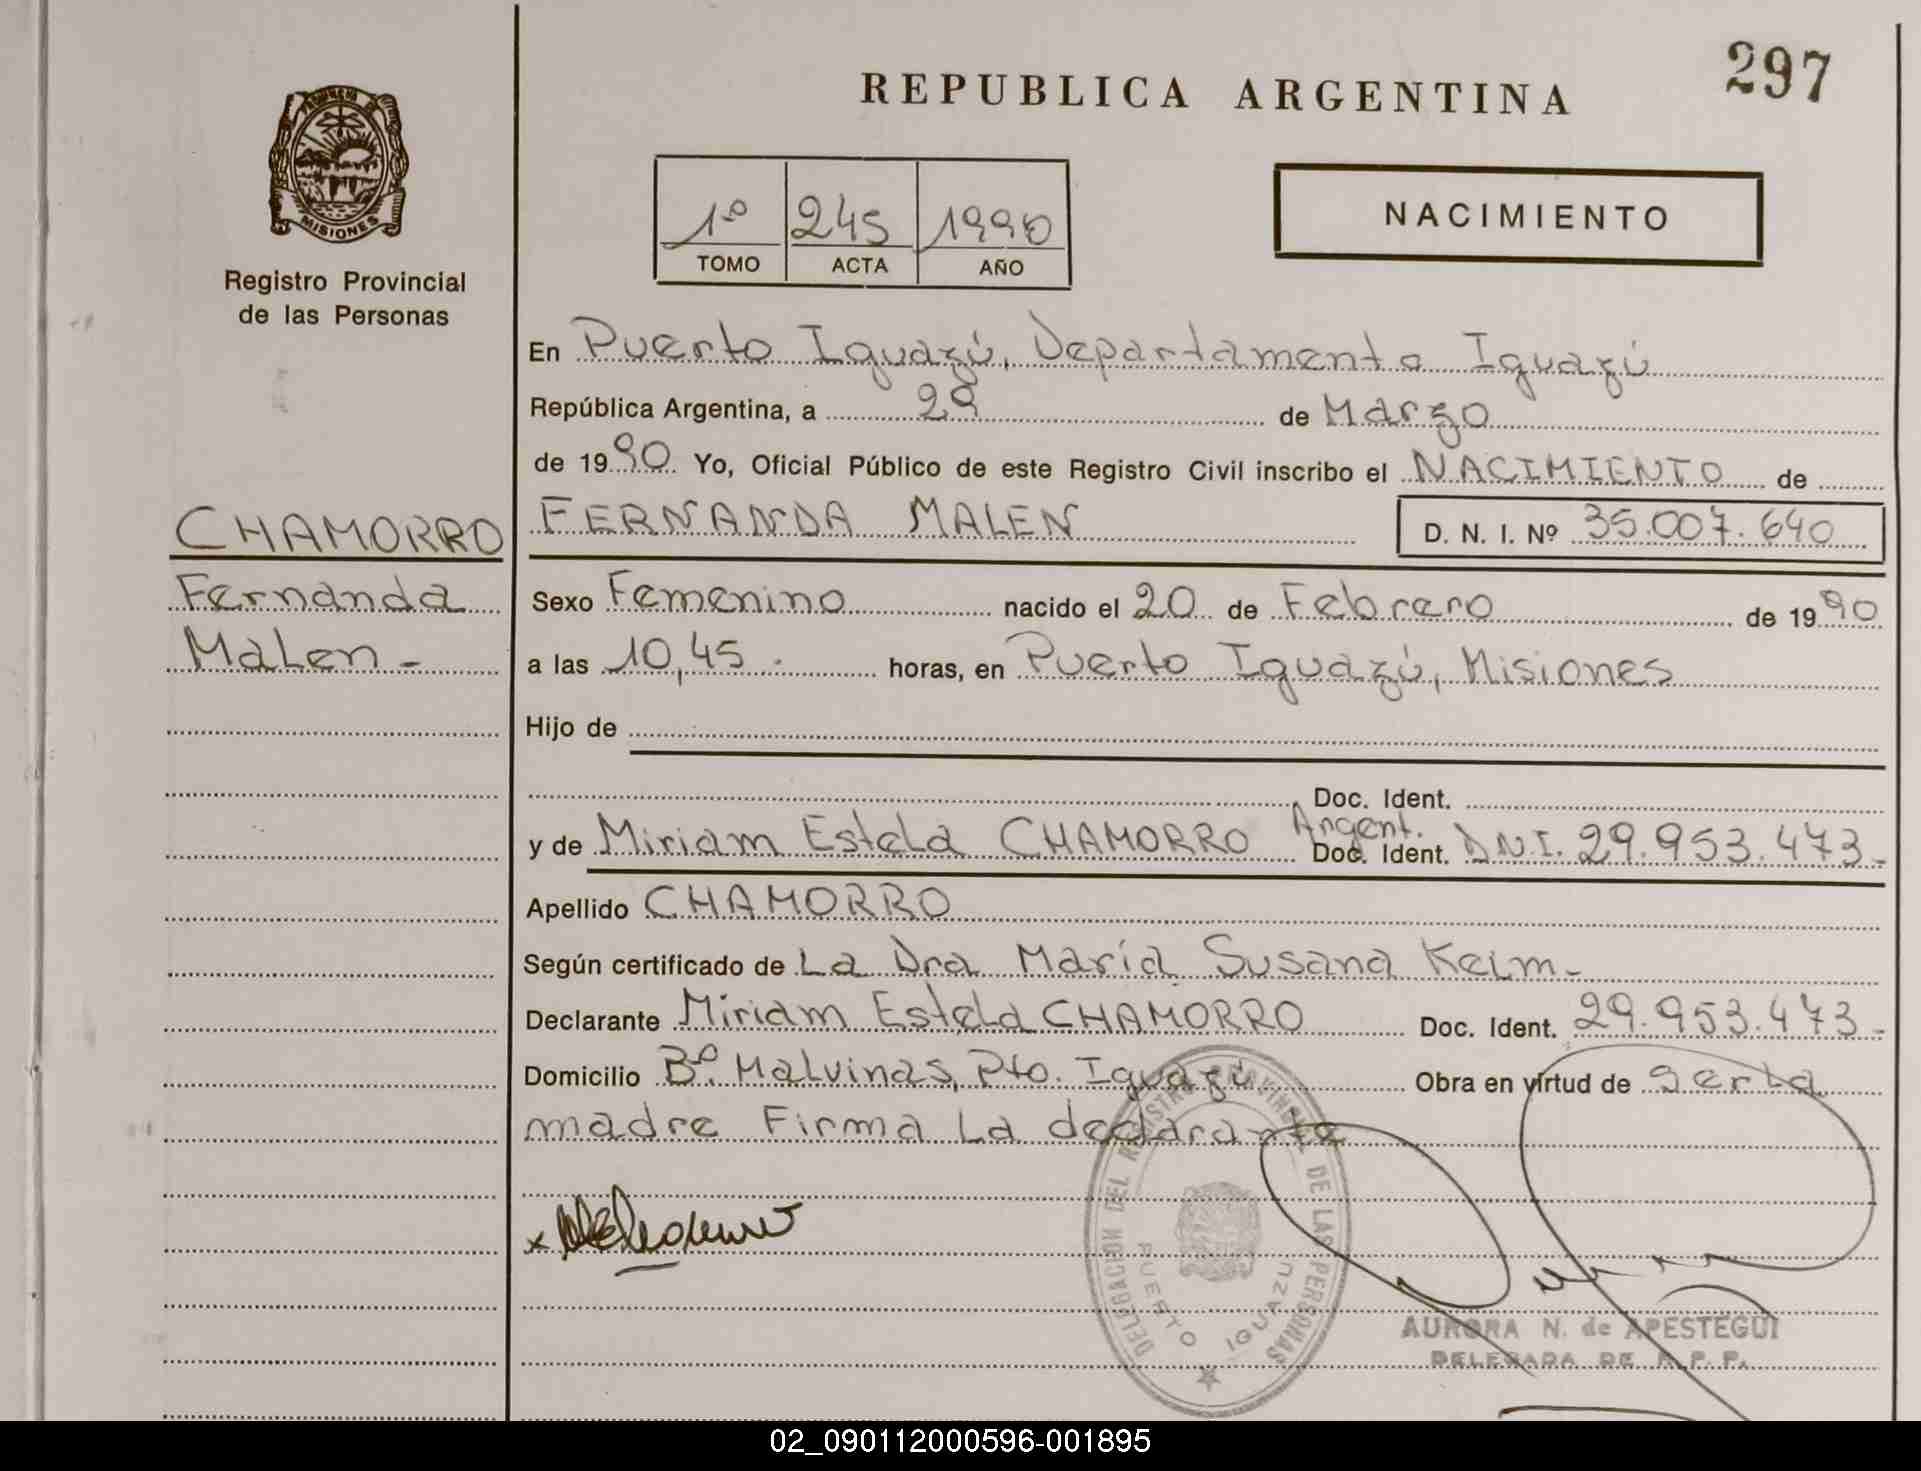 297
REPUBLICA ARGENTINA
PROVINCIA DE
MISIONES
Registro Provincial
de las Personas
1º 245 1990
TOMO ACTA AÑO
NACIMIENTO
En Puerto Iguazú, Departamento Iguazú
República Argentina, a 29 de Marzo
de 1990 Yo, Oficial Público de este Registro Civil inscribo el NACIMIENTO de
CHAMORRO
Fernanda
Malen -
FERNANDA MALEN D. N. I. Nº 35.007.640
Sexo Femenino nacido el 20 de Febrero de 1990
a las 10,45 . horas, en Puerto Iguazú, Misiones
Hijo de
Doc. Ident.
y de Miriam Estela CHAMORRO Argent. Doc. Ident. DNI. 29.953.473.-
Apellido CHAMORRO
Según certificado de La Dra María Susana Keim-
Declarante Miriam Estela CHAMORRO Doc. Ident. 29.953.473.-
Domicilio Bº. Malvinas, Pto. Iguazú Obra en virtud de ser la
madre Firma la declarante
x
DELEGACION DEL REGISTRO PROVINCIAL DE LAS PERSONAS
PUERTO IGUAZU
AURORA N. de APESTEGUI
DELEGADA DE R. P. P.
02_090112000596-001895